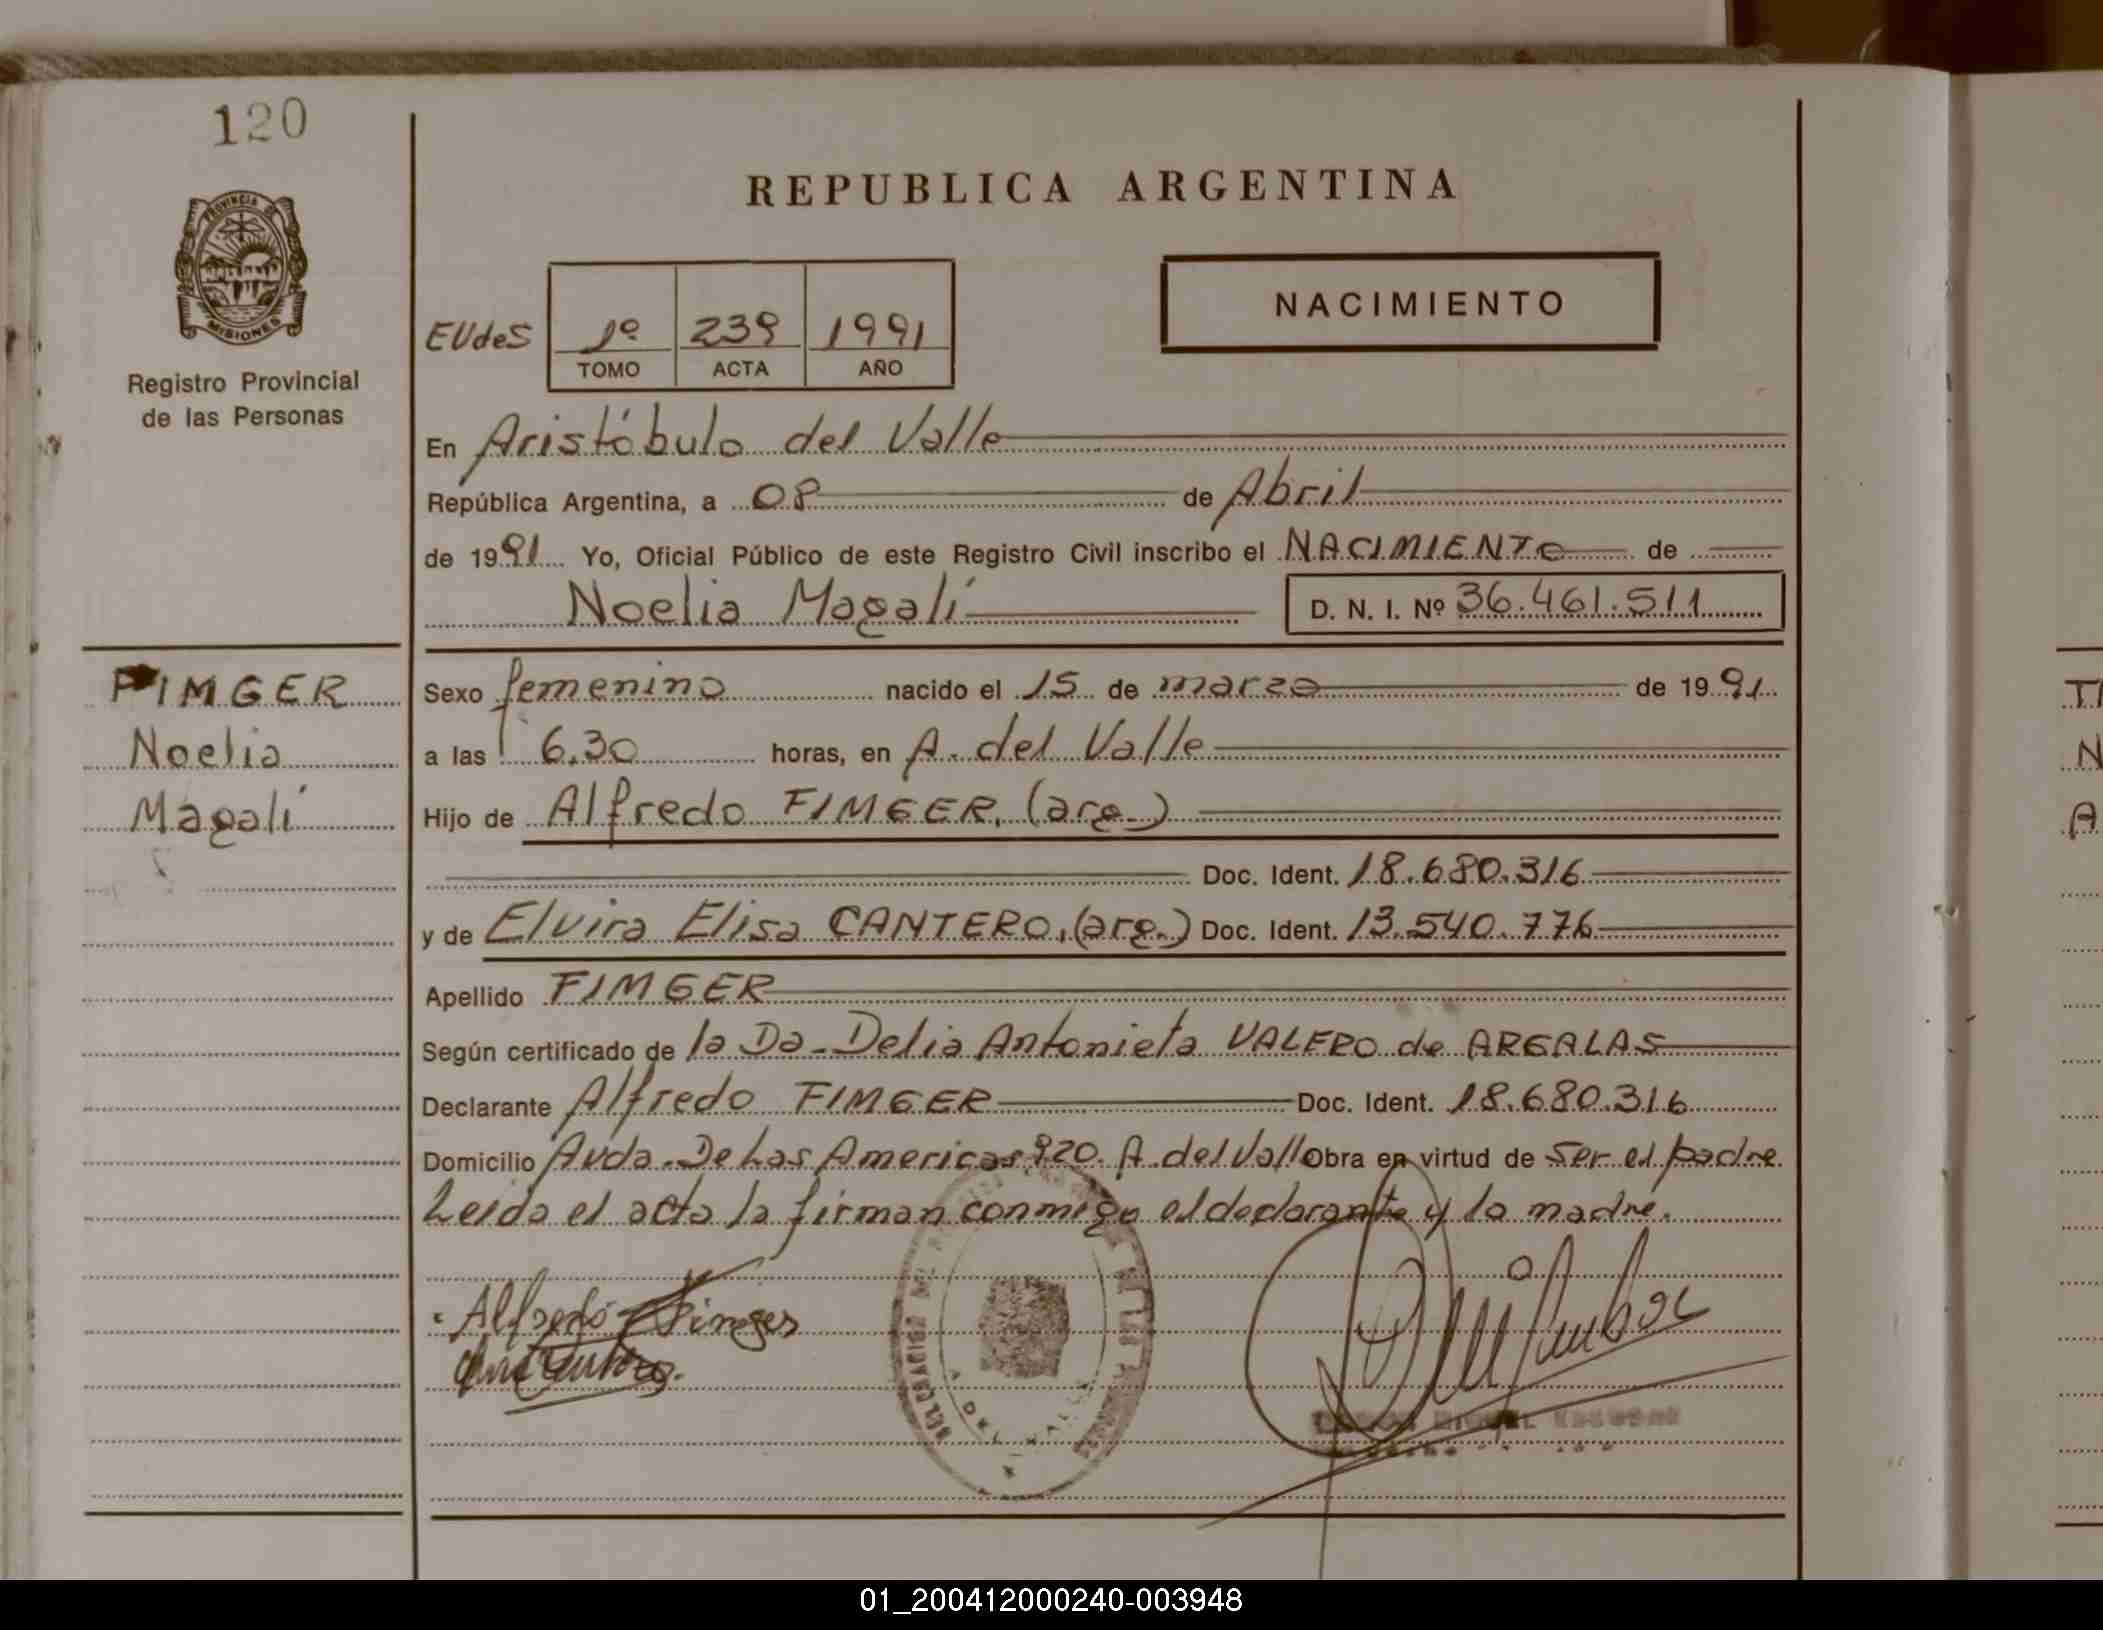 120
PROVINCIA DE
MISIONES
Registro Provincial
de las Personas
REPUBLICA ARGENTINA
EUdeS 1º 239 1991
TOMO ACTA AÑO
NACIMIENTO
En Aristóbulo del Valle
República Argentina, a 08 de Abril
de 1991 Yo, Oficial Público de este Registro Civil inscribo el NACIMIENTO de
Noelia Magalí D. N. I. Nº 36.461.511
FIMGER
Noelia
Magalí
Sexo femenino nacido el 15 de marzo de 1991
a las 6.30 horas, en A. del Valle
Hijo de Alfredo FIMGER, (arg.)
Doc. Ident. 18.680.316
y de Elvira Elisa CANTERO, (arg.) Doc. Ident. 13.540.776
Apellido FIMGER
Según certificado de la Da. Delia Antonieta VALERO de ARGALAS
Declarante Alfredo FIMGER Doc. Ident. 18.680.316
Domicilio Avda. De Las Americas 920. A. del Valle Obra en virtud de ser el padre
Leida el acta la firman conmigo el declarante y la madre.
Alfredo Fimger
A. DEL VALLE
T
N
A
01_200412000240-003948